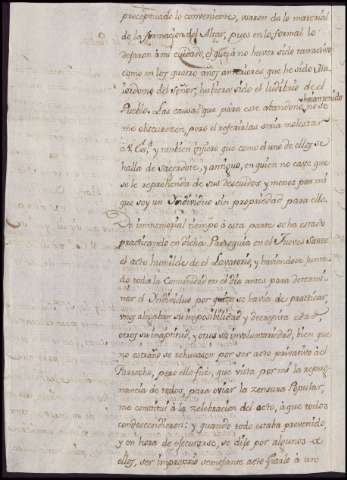 preceptuado lo conveniente, varon da lo material
de la formacion del Altar, pues en lo formal lo
dejaron à mi cuidado, el qual à no haver sido
como en los quatro años anteriores que he sido Ma
iordomo del Señor, hubiera sido el ludibrio de el
Pueblo. Las causas que para este abandono
han tenido
no se
me obscurecen, pero el referirlas sería molestar
à V.S.ª y tambien infiero que como el uno de ellos se
halla de Sacerdote, y antiguo, en quien no cave que
se le reprehenda de sus descuidos y menos por mi
que soy un Individuo sin propiedad para ello.
De immemorial tiempo à esta parte se ha estado
practicando en dicha Parroquia en el Jueves Santo
el acto humilde de el Lavatorio, y haviendose junta
do toda la Comunidad en el dia antes para determi
nar el Individuo por quien se havia de practicar,
unos alegaban su imposibilidad y
otros su inaptitud, y otros su involuntariedad, bien que
no estraño se rehusacen por ser acto privativo del
Parrocho, pero ello fué, que vista por mi la repug
nancia de todos, para oviar la zensura Popular,
me constitui à la zelebracion del acto, à que todos
condescendieron: y quando todo estaba prevenido,
y en hora de efectuarse, se dijo por algunos de
ellos, ser impropio semejante acto fiarle à uno